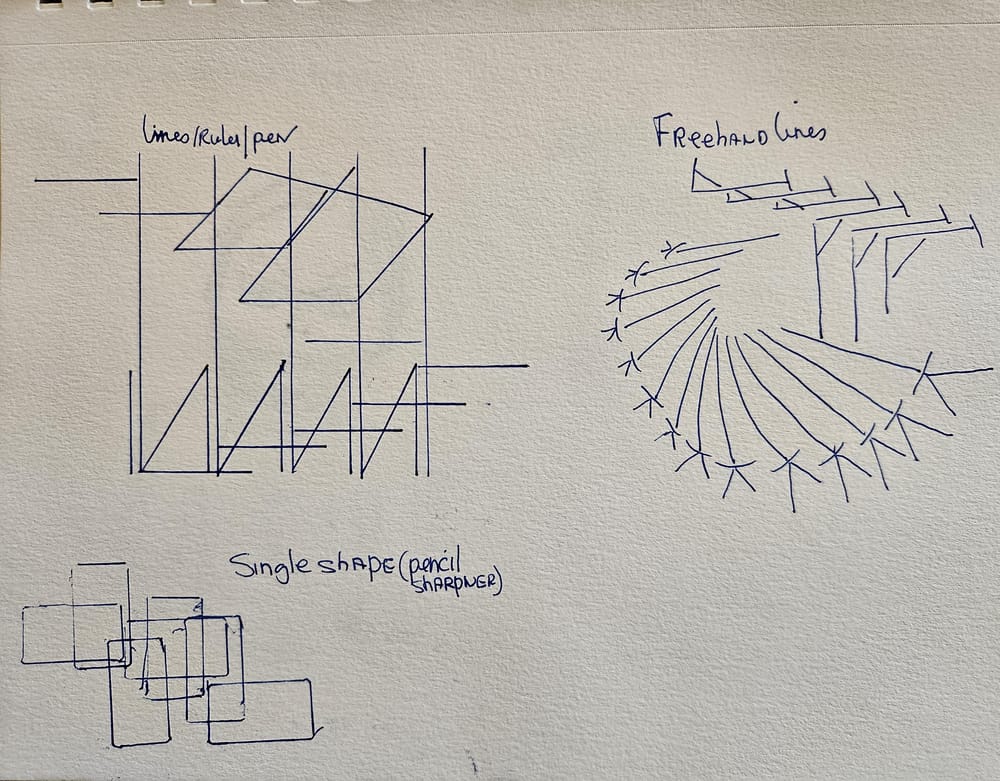 lines/Ruler/pen
FReehAND lines
Single shAPE (pencil
shARPNER)